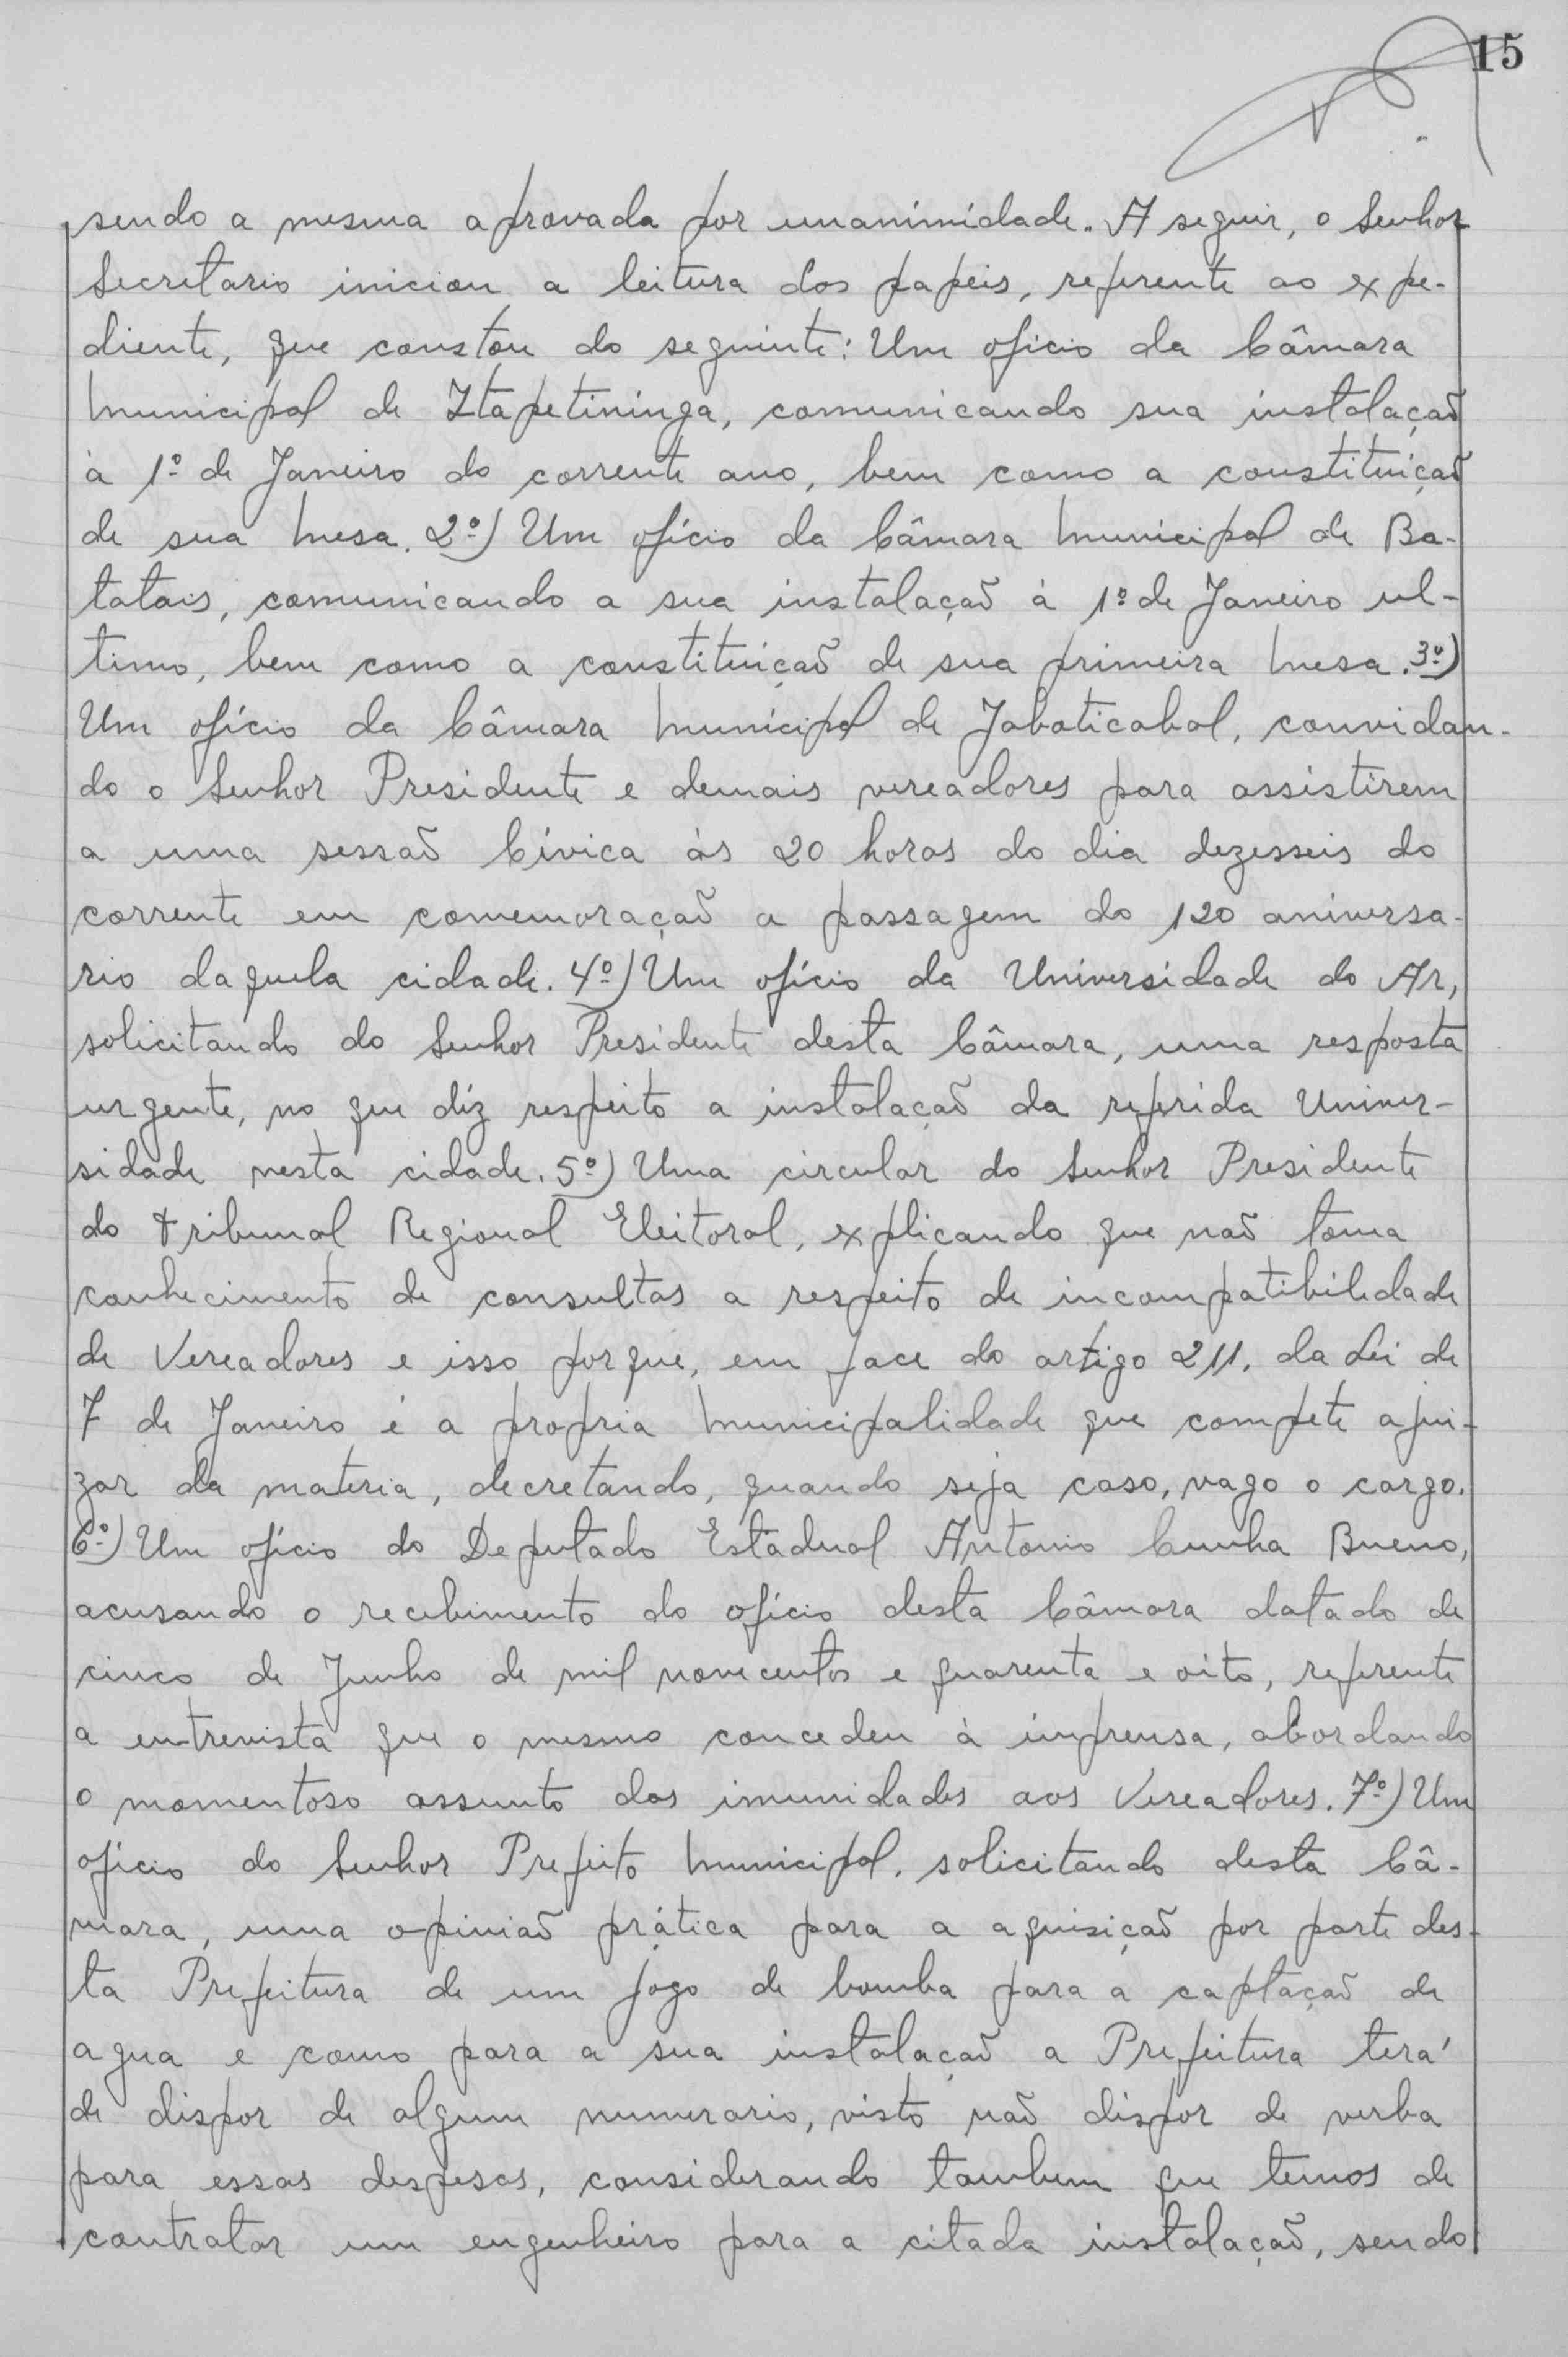 15
sendo a mesma aprovada por unanimidade. A seguir, o Senhor
Secretario iniciou a leitura dos papeis, referente ao expe-
diente, que constou do seguinte: Um oficio da Câmara
Municipal de Itapetininga, comunicando sua instalação
à 1º de Janeiro do corrente ano, bem como a constituição
de sua Mesa. 2º) Um ofício da Câmara Municipal de Ba-
tatais, comunicando a sua instalação à 1º de Janeiro ul-
timo, bem como a constituição de sua primeira Mesa. 3º)
Um ofício da Câmara Municipal de Jaboticabal, convidan-
do o Senhor Presidente e demais vereadores para assistirem
a uma sessão Cívica às 20 horas do dia dezesseis do
corrente em comemoração a passagem do 120 aniversa-
rio daquela cidade. 4º) Um ofício da Universidade do Ar,
solicitando do Senhor Presidente desta Câmara, uma resposta
urgente, no que diz respeito a instalação da referida Univer-
sidade nesta cidade. 5º) Uma circular do Senhor Presidente
do Tribunal Regional Eleitoral, explicando que não toma
conhecimento de consultas a respeito de incompatibilidade
de Vereadores e isso porque, em face do artigo 211, da Lei de
7 de Janeiro é a propria Municipalidade que compete ajui-
zar da materia, decretando, quando seja caso, vago o cargo.
6º) Um ofício do Deputado Estadual Antonio Cunha Bueno,
acusando o recebimento do ofício desta Câmara datado de
cinco de Junho de mil novecentos e quarenta e oito, referente
a entrevista que o mesmo concedeu à imprensa, abordando
o momentoso assunto das imunidades aos Vereadores. 7º) Um
ofício do Senhor Prefeito Municipal, solicitando desta Câ-
mara, uma opinião prática para a aquisição por parte des-
ta Prefeitura de um jogo de bomba para a captação de
agua e como para a sua instalação a Prefeitura terá
de dispor de algum numerario, visto não dispor de verba
para essas despesas, considerando tambem que temos de
contratar um engenheiro para a citada instalação, sendo